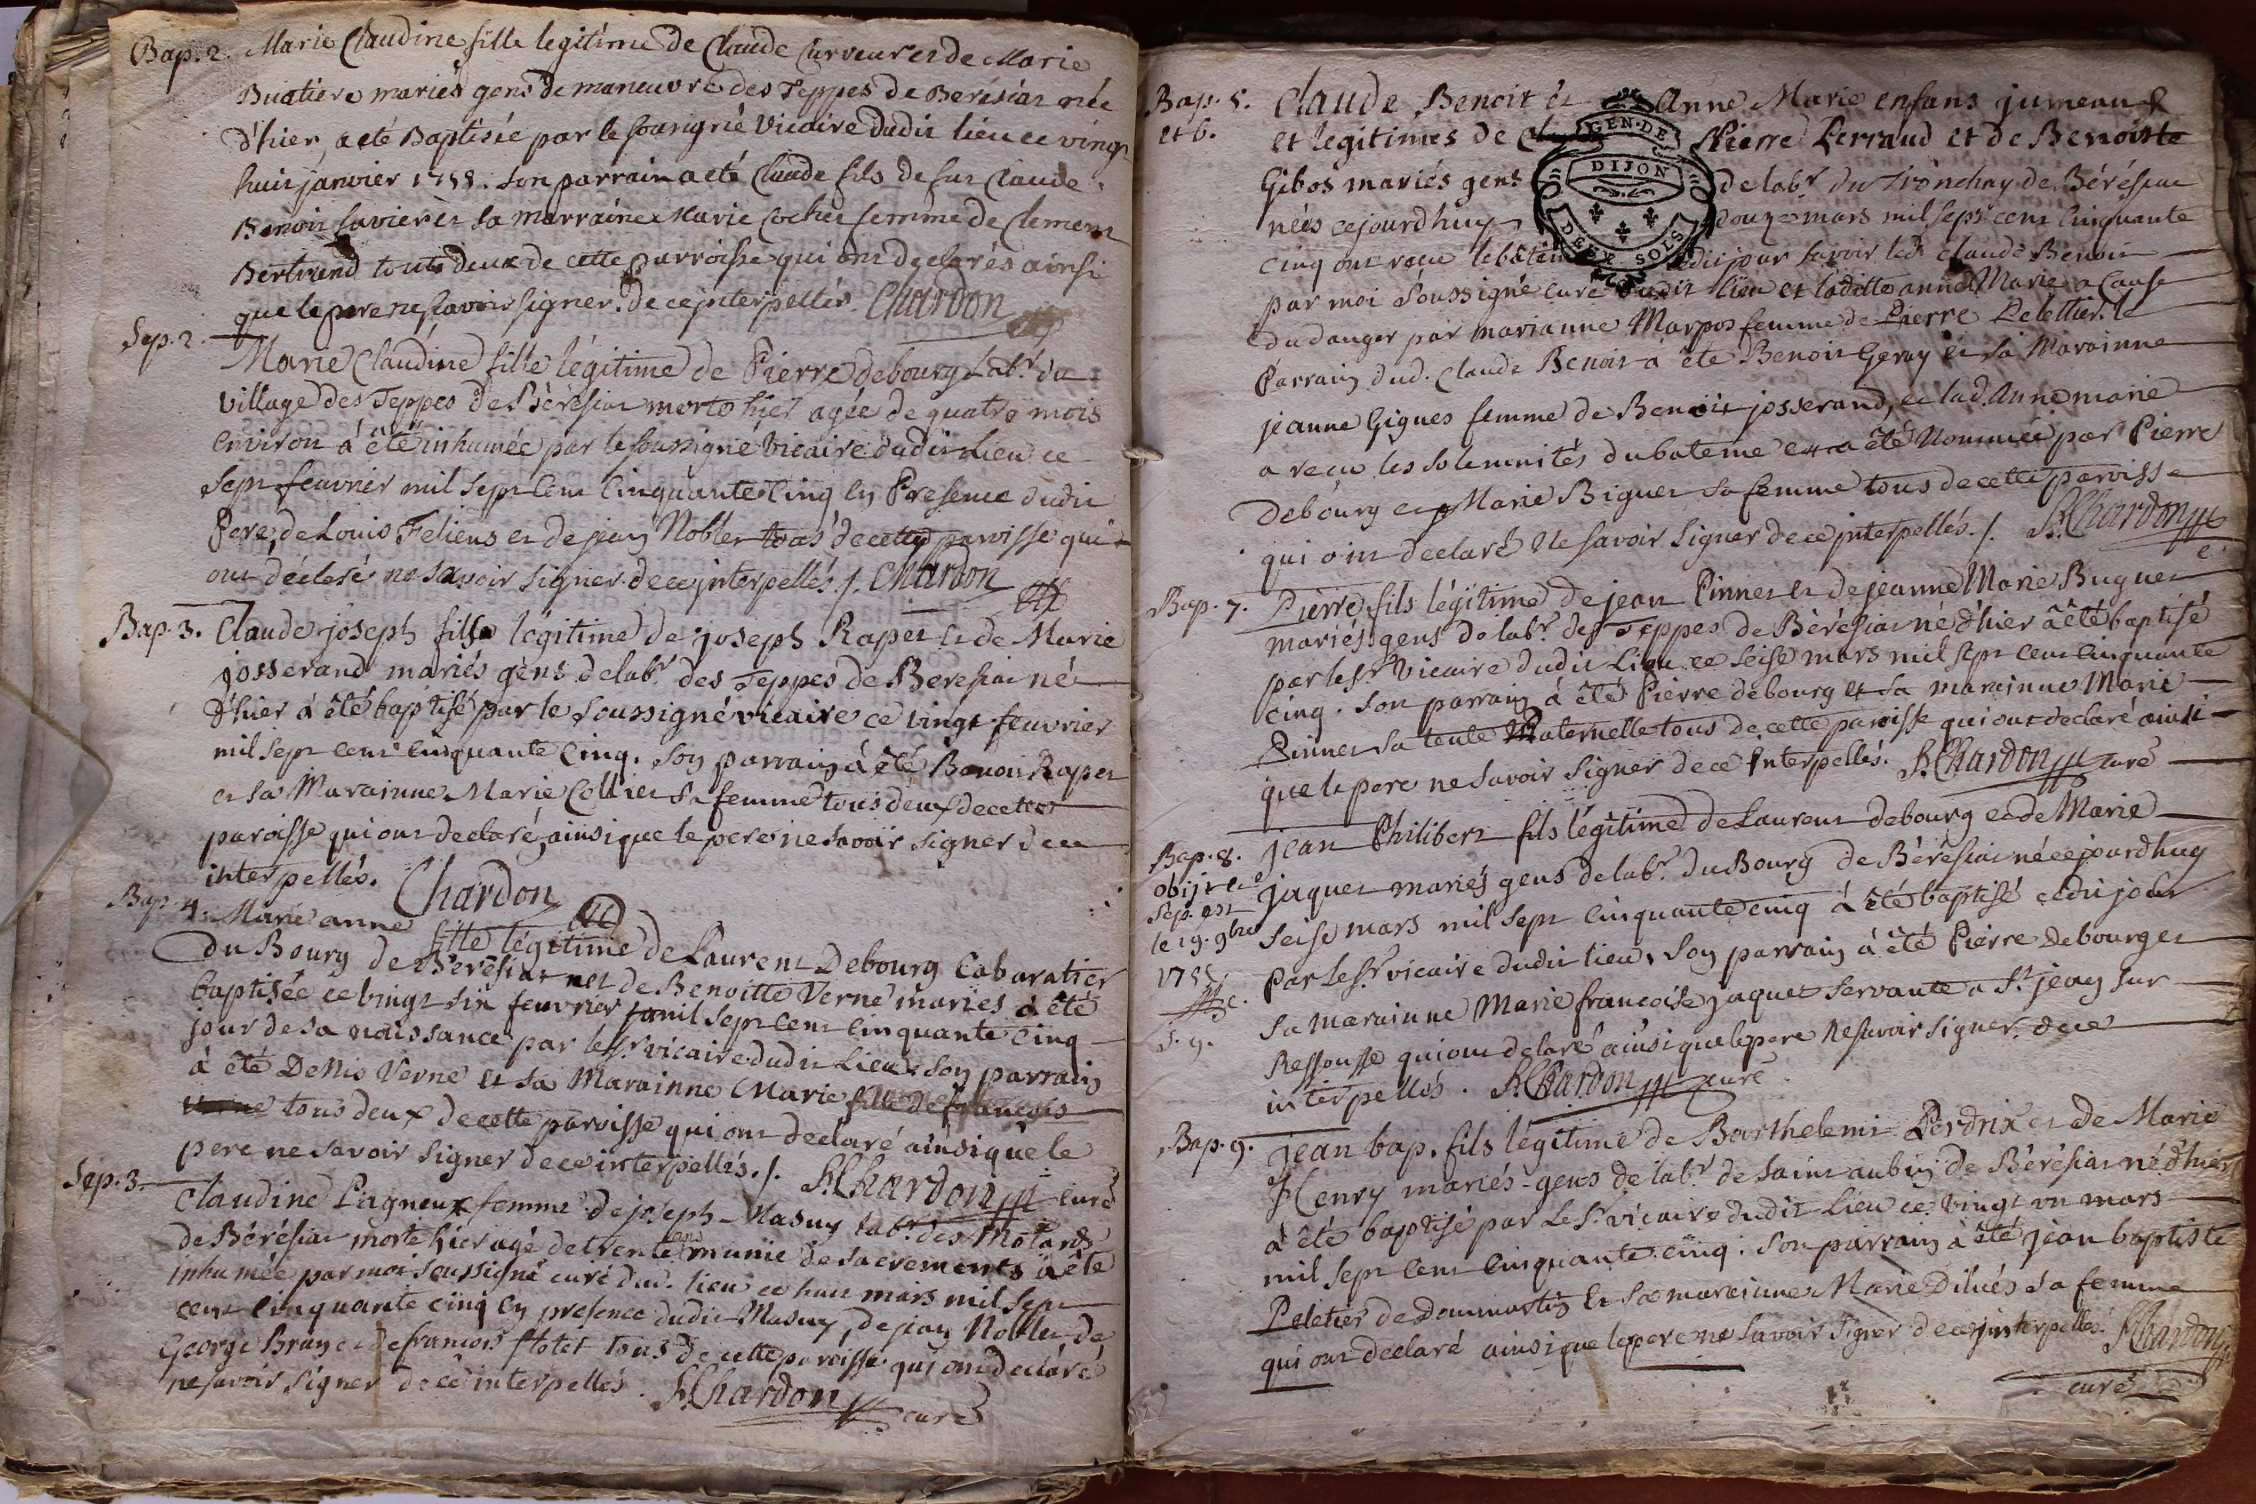 Bap. 2. Marie Claudine fille legitime de Claude Curveur et de Marie
Buatiere mariés gens de maneuvre des Teppes de Berésiat née
d'hier, a eté Baptisée par le sousigné Vicaire dudit lieu ce vingt
huit janvier 1755. Son parrain a eté Claude fils de fut Claude
Benoit Savier et sa marraine Marie Cochet femme de Clement
Bertrand touts deux de cette parroisse qui ont declarés ainsi
que le pere ne scavoir signer. de ce interpellés. Chardon
Sep. 2. Marie Claudine fille légitime de Pierre debourg Labr. du
village des Teppes de Bérésiat morte hier agée de quatre mois
environ à été inhumée par le soussigné Vicaire dudit Lieu ce
sept feuvrier mil sept cent cinquante cinq en Presence dudit
Pere, de Louis Feliens et de jean Noblet tous de cette paroisse qui
ont déclaré ne savoir signer de ce interpellés ./. Chardon
Bap. 3. Claude joseph fils legitime de joseph Rapet et de Marie
josserand mariés gens de labr. des Teppes de Beresiat né
d'hier à été baptisé par le soussigné vicaire ce vingt feuvrier
mil sept cent cinquante cinq. son parrain à été Benoit Rapet
et sa Marainne Marie Colliet sa femme tous deux de cette
paroisse qui ont declaré, ainsi que le pere ne savoir signer de ce
interpellés. Chardon
Bap. 4. Marie anne fille légitime de Laurent Debourg Cabaratier
du Bourg de Berésiat et de Benoitte Verne mariés à été
baptisée ce vingt six feuvrier mil sept cent cinquante cinq
jour de sa naissance par le sr. vicaire dudit Lieu. son parrain
à été Denis Verne et sa Marainne Marie fille de francois
tous deux de cette paroisse qui ont declaré ainsi que le
pere ne savoir signer de ce interpellés. /. Chardon curé
Sep. 3. Claudine Pagneux femme de joseph Masuy labr. des Motards
de Bérésiat morte hier agé de trente ans munie de sacrements à été
inhumée par moi soussigné curé dud. lieu ce huit mars mil sept
cent cinquante cinq en presence dudit Masuy, de jean Noblet de
George Brayet de francois Plotet tous de cette paroisse qui ont declaré
ne savoir signer de ce interpellés. Chardon curé
Bap. 5. Claude Benoit et Anne Marie enfans jumeaux
et 6. et legitimes de Pierre Perraud et de Benoiste
Gibos mariés gens de labr. du Tronchay de Bérésiat
nées cejourdhuy douze mars mil sept cent cinquante
cinq ont reçu le batême ledit jour savoir led. claude Benoit
par moi soussigné curé dudit lieu et laditte anne Marie a cause
du danger par marianne Marpos femme de Pierre Pelettier. le
Parrain dud. Claude Benoit a été Benoit Geray et sa Marainne
jeanne Gigues femme de Benoit josserand, et lad. Anne marie
a reçu les solemnités du bateme et a été Nommée par Pierre
Debourg et Marie Biguet sa femme tous de cette paroisse
qui ont declaré Ne savoir signer de ce interpellés. /. Chardon
Bap. 7. Pierre fils légitime de jean Pinnet et de jeanne Marie Buguet
mariés gens de labr. des Teppes de Bérésiat né d'hier à été baptisé
par le sr. Vicaire dudit Lieu ce seise mars mil sept cent cinquante
cinq. Son parrain à été Pierre debourg et sa marainne Marie
Pinnet sa tente Paternelle tous de cette paroisse qui ont declaré ainsi
que le pere ne savoir signer de ce Interpellés. Chardon curé
Bap. 8. jean Philibert fils légitime de Laurent debourg et de Marie
obijt et
Sep. est
le 19. 9bre
1755
jaquet mariés gens de labr. du Bourg de Bérésiat né cejourdhuy
seise mars mil sept cinquante cinq à été baptisé cedit jour
Par le sr. vicaire dudit lieu, son parrain à été Pierre Debourg et
sa marainne Marie francoise jaquet servante a St. jean sur
Ressousse qui ont declaré ainsi que le pere Ne savoir signer. de ce
interpellés. Chardon curé
Bap. 9. jean bap. fils légitime de Barthelemi Perdrix et de Marie
Henry mariés gens de labr. de saint aubin de Bérésiat né d'hier
à été baptisé par le sr. vicaire dudit Lieu ce vingt un mars
mil sept cent cinquante cinq. son parrain à été jean baptiste
Peletier de Dommartin et sa marainne Marie Diluès sa femme
qui ont declaré ainsi que le pere ne savoir signer de ce interpellés. Chardon
curé
GEN. DE
DIJON
DEUX SOLS